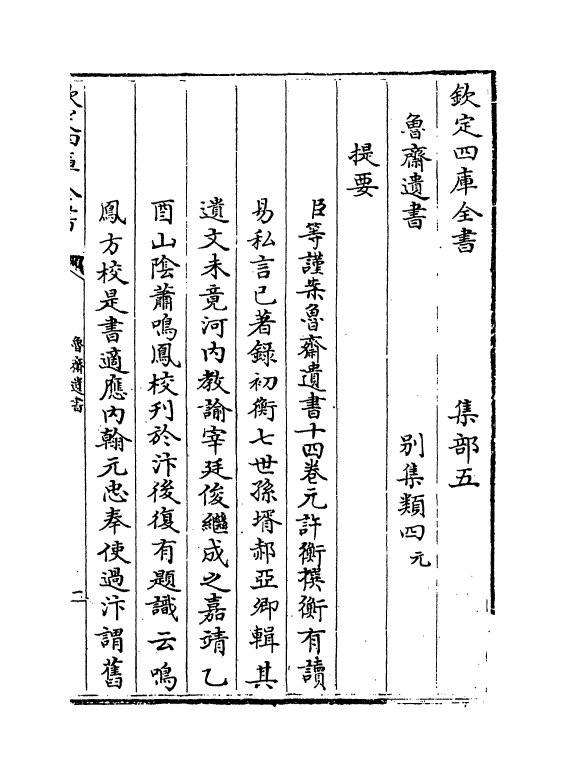 欽定四庫全書　集部五
魯齋遺書　别集類四元
提要
臣等謹案魯齋遺書十四卷元許衡撰衡有讀
易私言已著録初衡七世孫壻郝亞卿輯其
遺文未竟河内教諭宰廷俊繼成之嘉靖乙
酉山陰蕭鳴鳳校刊於汴後復有題識云鳴
鳳方校是書適應内翰元忠奉使過汴謂舊
魯齋遺書